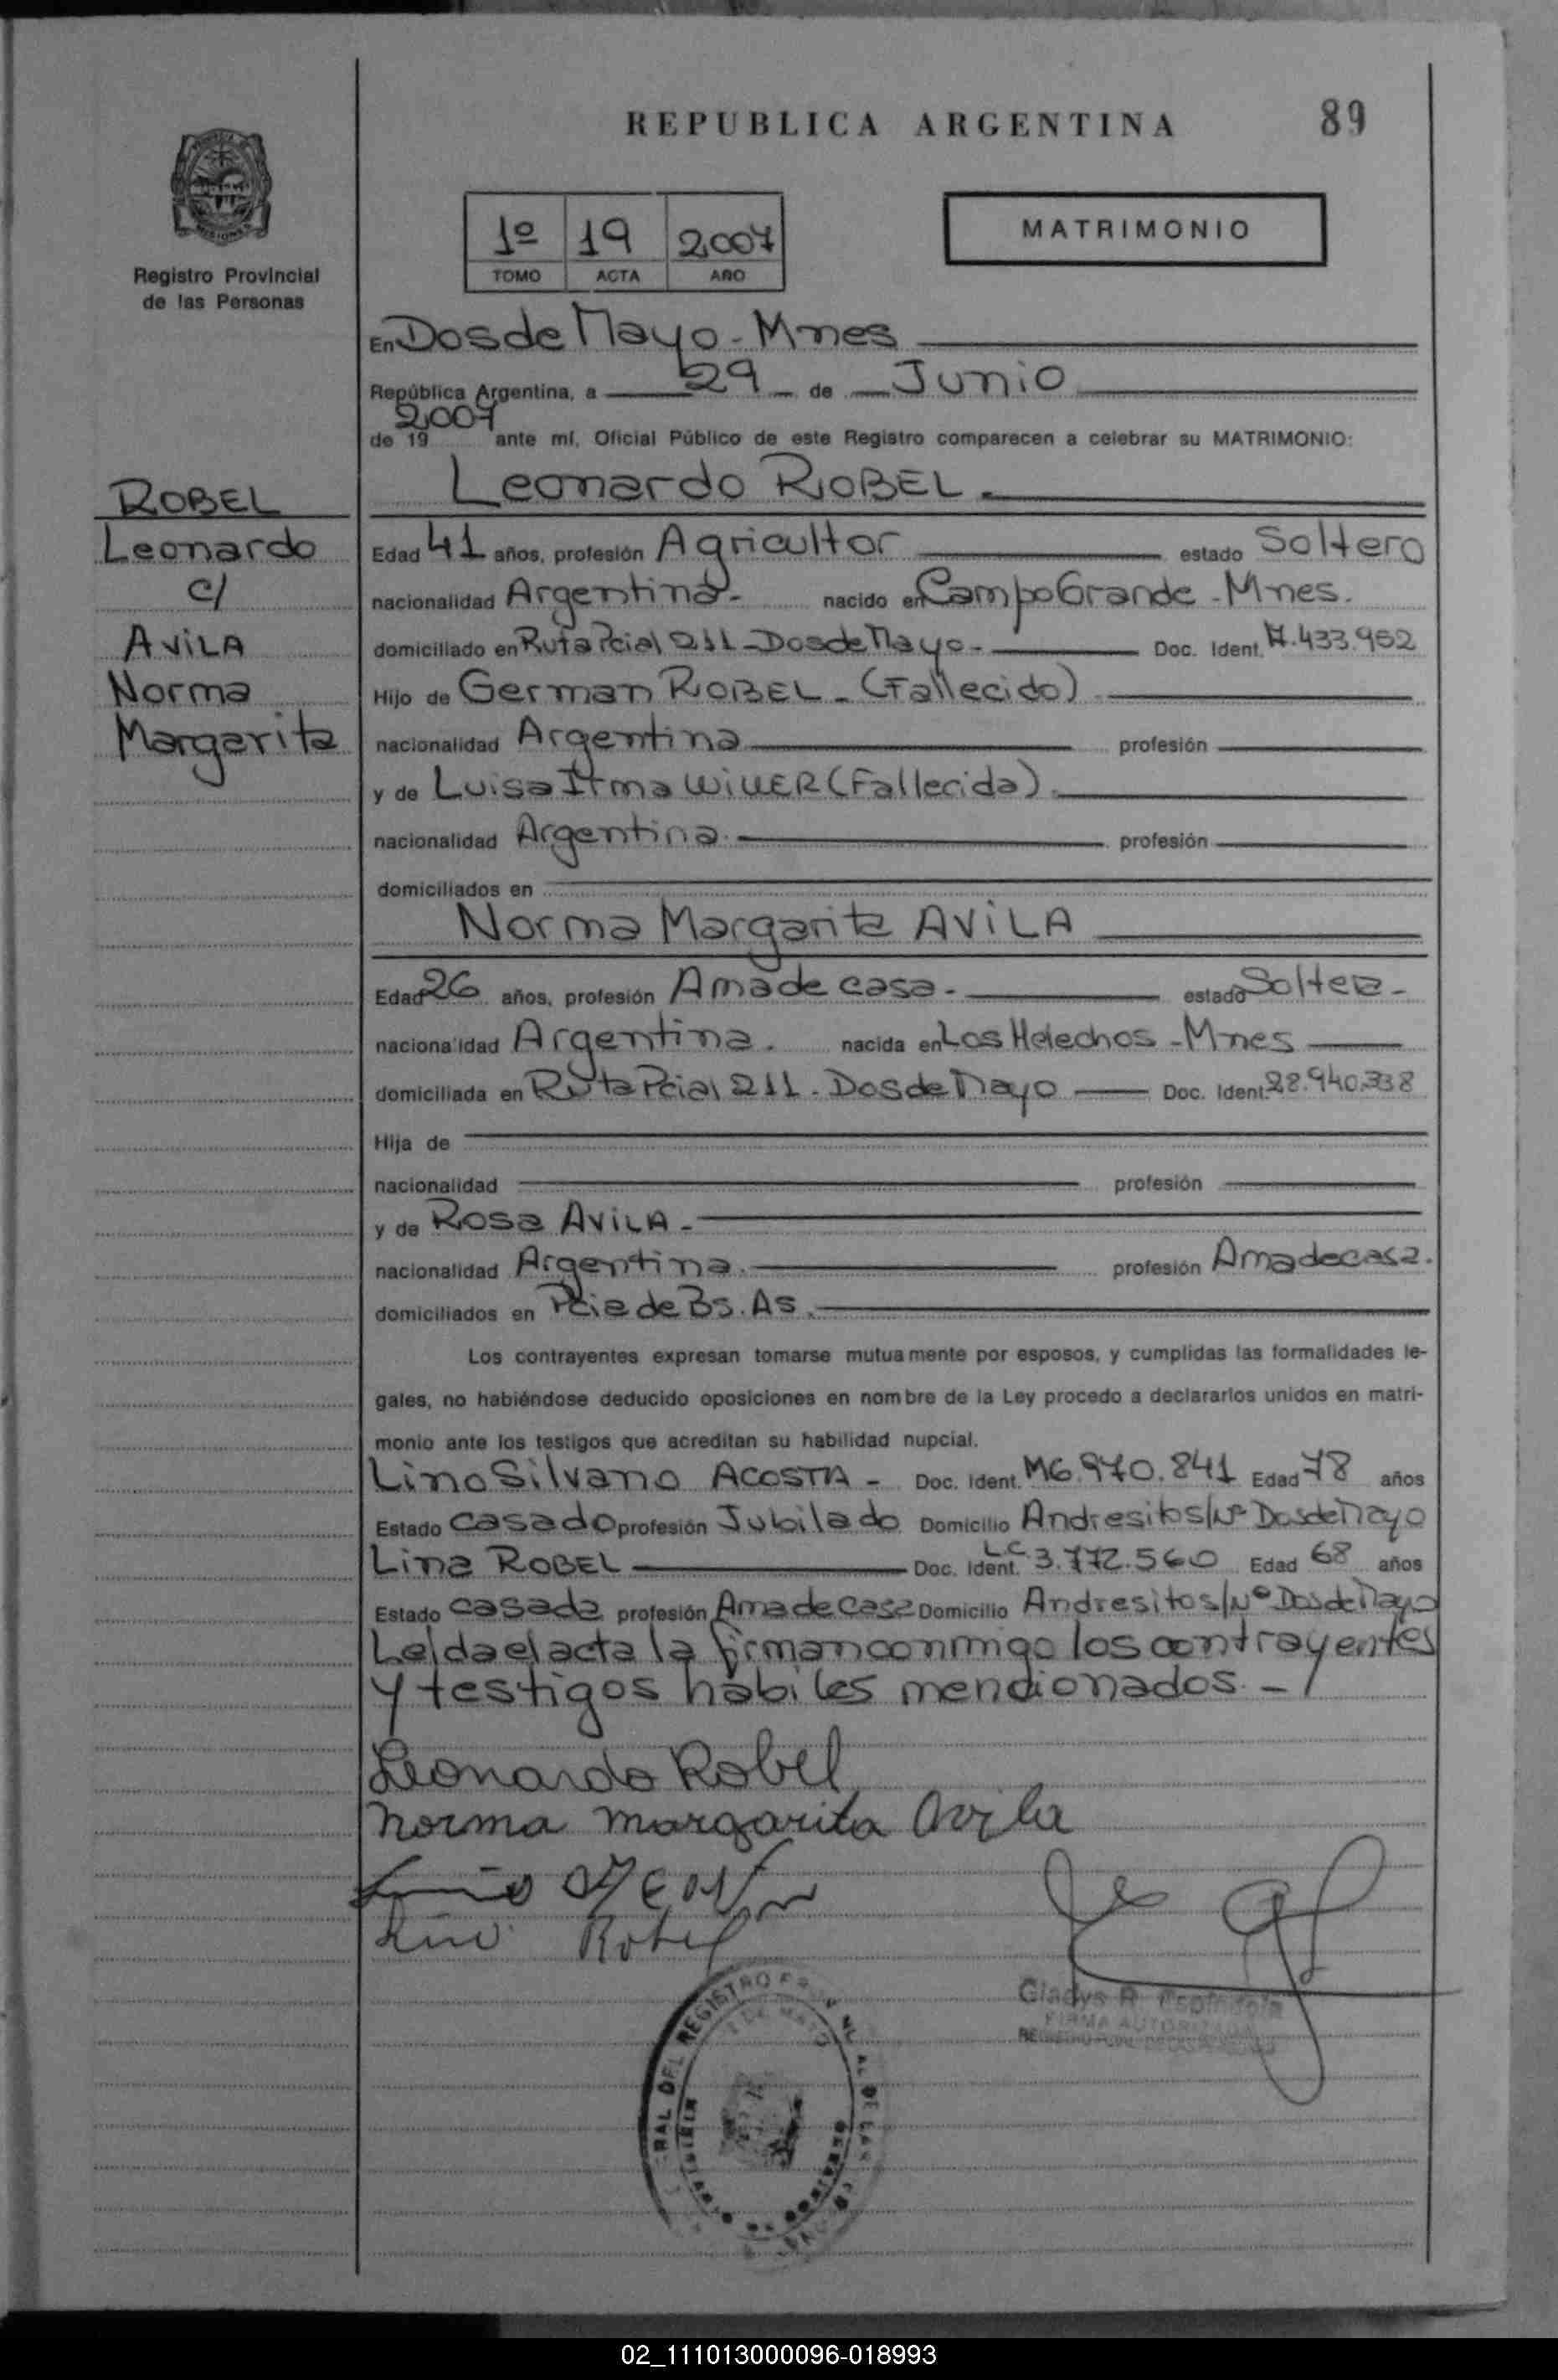 REPUBLICA ARGENTINA
89
MISIONES
Registro Provincial
de las Personas
1º 19 2007
TOMO ACTA AÑO
MATRIMONIO
En Dos de Mayo - Mnes
República Argentina, a 29 de Junio
2007
de 19 ante mí, Oficial Público de este Registro comparecen a celebrar su MATRIMONIO:
ROBEL
Leonardo
c/
AVILA
Norma
Margarita
Leonardo ROBEL.
Edad 41 años, profesión Agricultor estado Soltero
nacionalidad Argentina- nacido en Campo Grande - Mnes.
domiciliado en Ruta Pcial 211 - Dos de Mayo - Doc. Ident. .433.952
Hijo de German ROBEL - (Fallecido)
nacionalidad Argentina profesión
y de Luisa WILLER (Fallecida).
nacionalidad Argentina. profesión
domiciliados en
Norma Margarita AVILA
Edad 26 años, profesión Ama de casa. estado Soltera -
nacionalidad Argentina. nacida en Los Helechos - Mnes
domiciliada en Ruta Pcial 211 - Dos de Mayo Doc. Ident. 28.940.338
Hija de
nacionalidad profesión
y de Rosa AVILA -
nacionalidad Argentina. profesión Ama de casa.
domiciliados en Pcia de Bs. As.
Los contrayentes expresan tomarse mutuamente por esposos, y cumplidas las formalidades le-
gales, no habiéndose deducido oposiciones en nombre de la Ley procedo a declararlos unidos en matri-
monio ante los testigos que acreditan su habilidad nupcial.
Lino Silvano ACOSTA - Doc. Ident. M6.970.841 Edad 78 años
Estado Casado profesión Jubilado Domicilio Andresito s/Nº Dos de Mayo
Lina ROBEL Doc. Ident. L.C. 3.772.560 Edad 68 años
Estado casada profesión Ama de Casa Domicilio Andresito s/Nº Dos de Mayo
Leída el acta la firman conmigo los contrayentes
y testigos hábiles mencionados. -
Leonardo Robel
Norma margarita Avila
Lina Robel
Gladys R. Espíndola
FIRMA AUTORIZADA
DEL REGISTRO
02_111013000096-018993